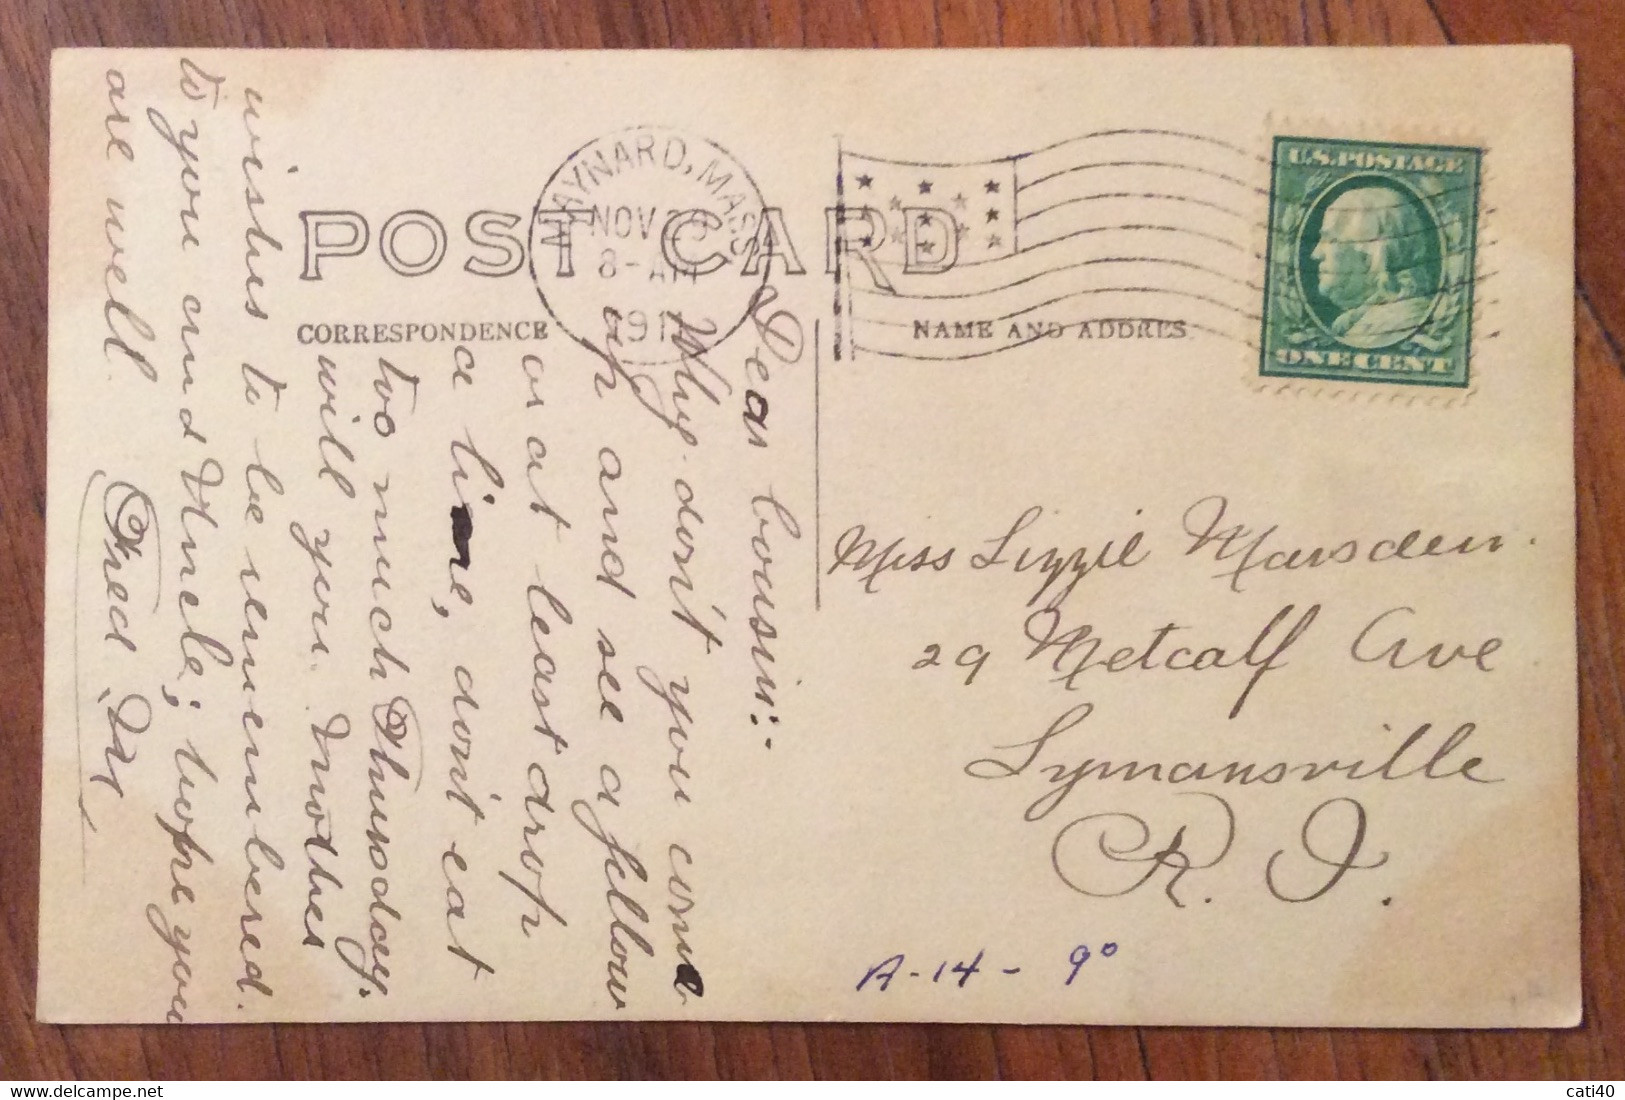 POST CARD
CORRESPONDENCE
NAME AND ADDRES
MAYNARD, MASS.
NOV
8-AM
191
U.S. POSTAGE
ONE CENT
Dear Cousin:-
Why don't you come
up and see a fellow
or at least drop
a line, don't eat
too much Thursday.
will you. Mother
wishes to be remembered.
to you and Uncle; hope you
are well.
Fred
Miss Lizzie Marsden.
29 Metcalf Ave
Lymansville
R. I.
A-14- 9°
cati40